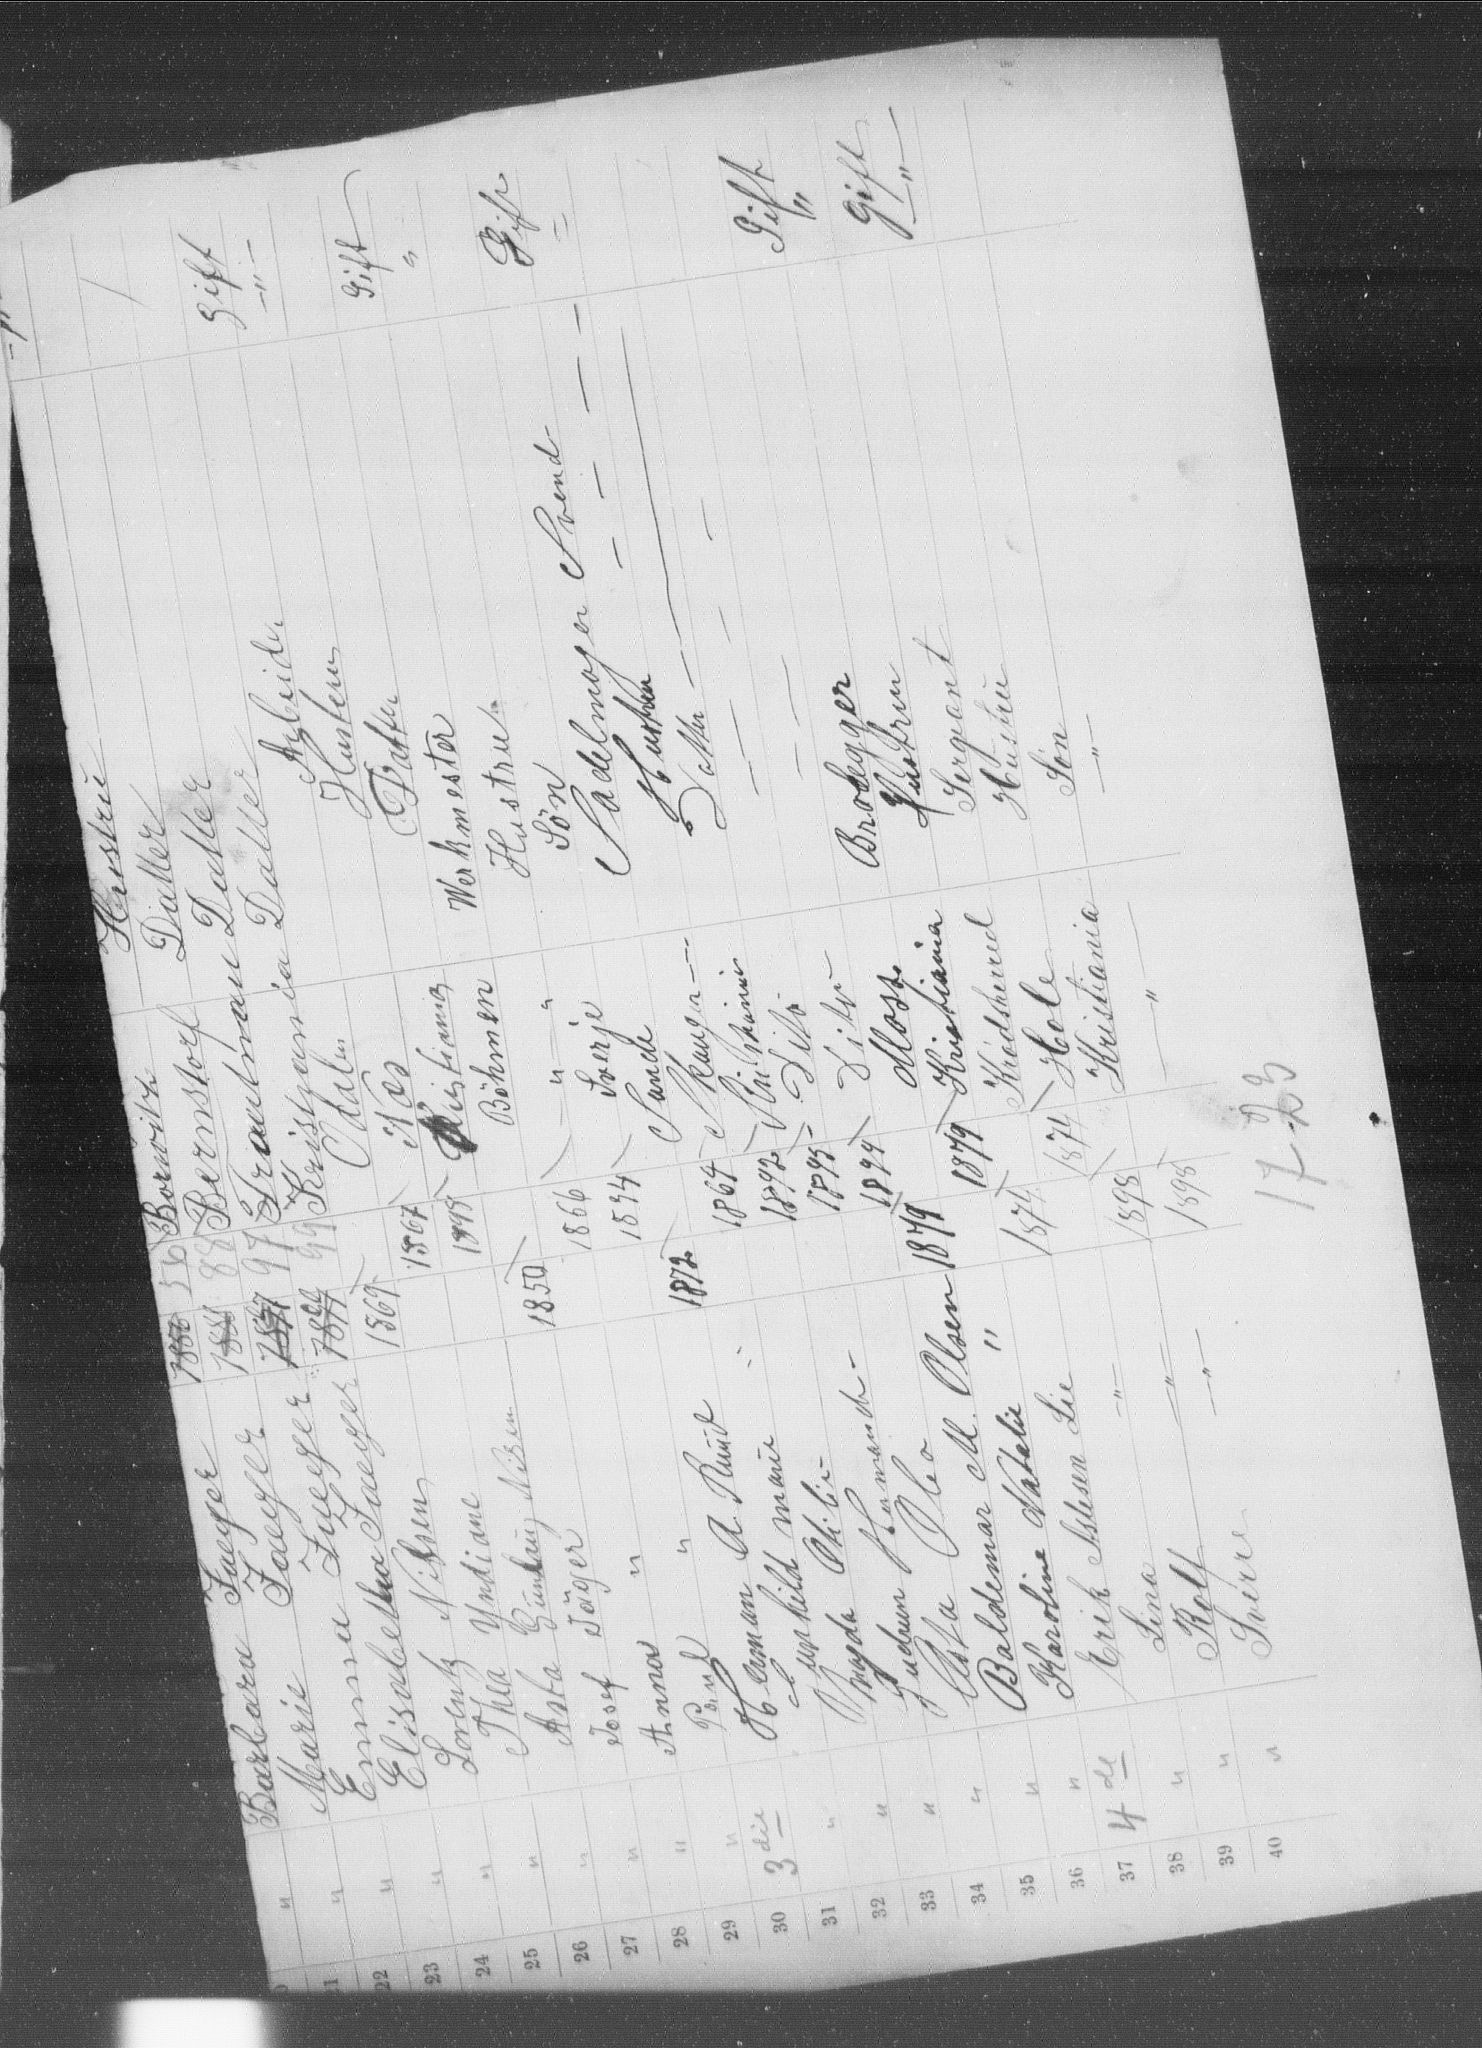 " Barbara Jaeger 1856 56 Borwitz Hustrü
21 " Marie Jaeger 88 Bernstorf Datter
22 " Emma Jaeger 1897 97 Trautmau Datter Gift
23 " Elisabetha Jaeger 1899 99 Kristjania Datter -"-
24 " Lorentz Nilsen 1869 Odalen Arbeid.
25 " Thea Yndiane 1867 Næs Hustru Gift
26 " Asta Gunlaug Nilsen 1895 Kristiania Datter "
27 " Josef Jäger 1850 Böhmen Werkmester
28 " Anna " 1866 " " Hustru Gift
29 " Paul " 1894 Sverje Søn "
30 3die Herman A. Ruud 1872 Sande Sadelmager Svend
31 " Marie 1864 Hustru
32 " Magda 1892 Kristiania Datter
33 " Gudrun Hermand 1895 Ditto
34 " Asta Olea 1894 Ditto
35 " Baldemar M. Olsen 1879 Moss Brolegger Gift
36 " Karoline Natalie " 1879 Kristiania Hustru "
37 4de Erik Aslesen Lie 1874 Krødsherred Sergeant Gift
38 " Lina -"- 1874 Hole Hustru -"-
39 " Rolf -"- 1895 Kristiania Søn
40 " Sverre -"- 1898 -"- -"-
17-23